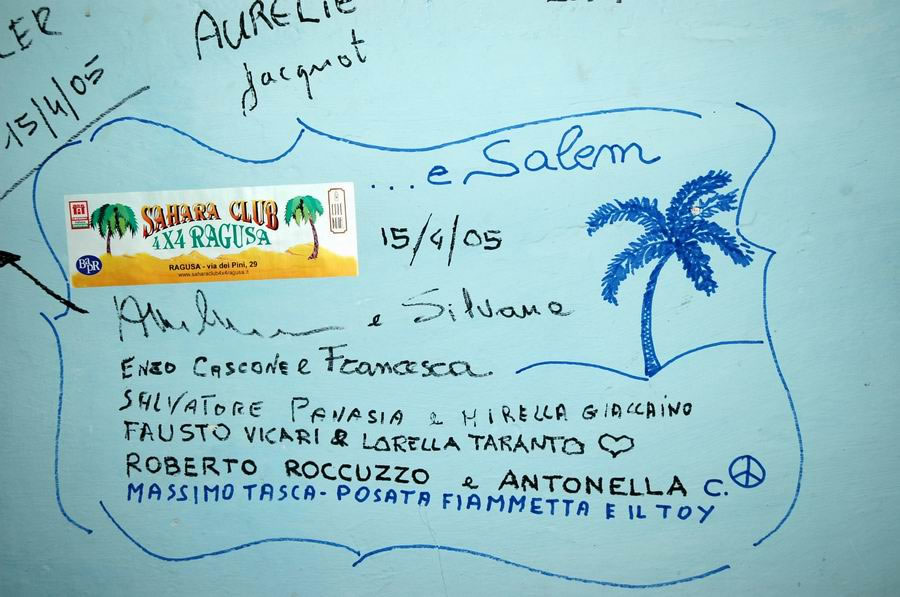 LER
AURELIE
Jacquot
15/4/05
...e Salem
SAHARA CLUB
4X4 RAGUSA
RAGUSA - via dei Pini, 29
www.saharaclub4x4ragusa.it
15/4/05
e Silvana
ENZO CASCONE e Francesca
SALVATORE PANASIA e MIRELLA GIACCAINO
FAUSTO VICARI & LORELLA TARANTO
ROBERTO ROCCUZZO e ANTONELLA C.
MASSIMO TASCA - POSATA FIAMMETTA E IL TOY